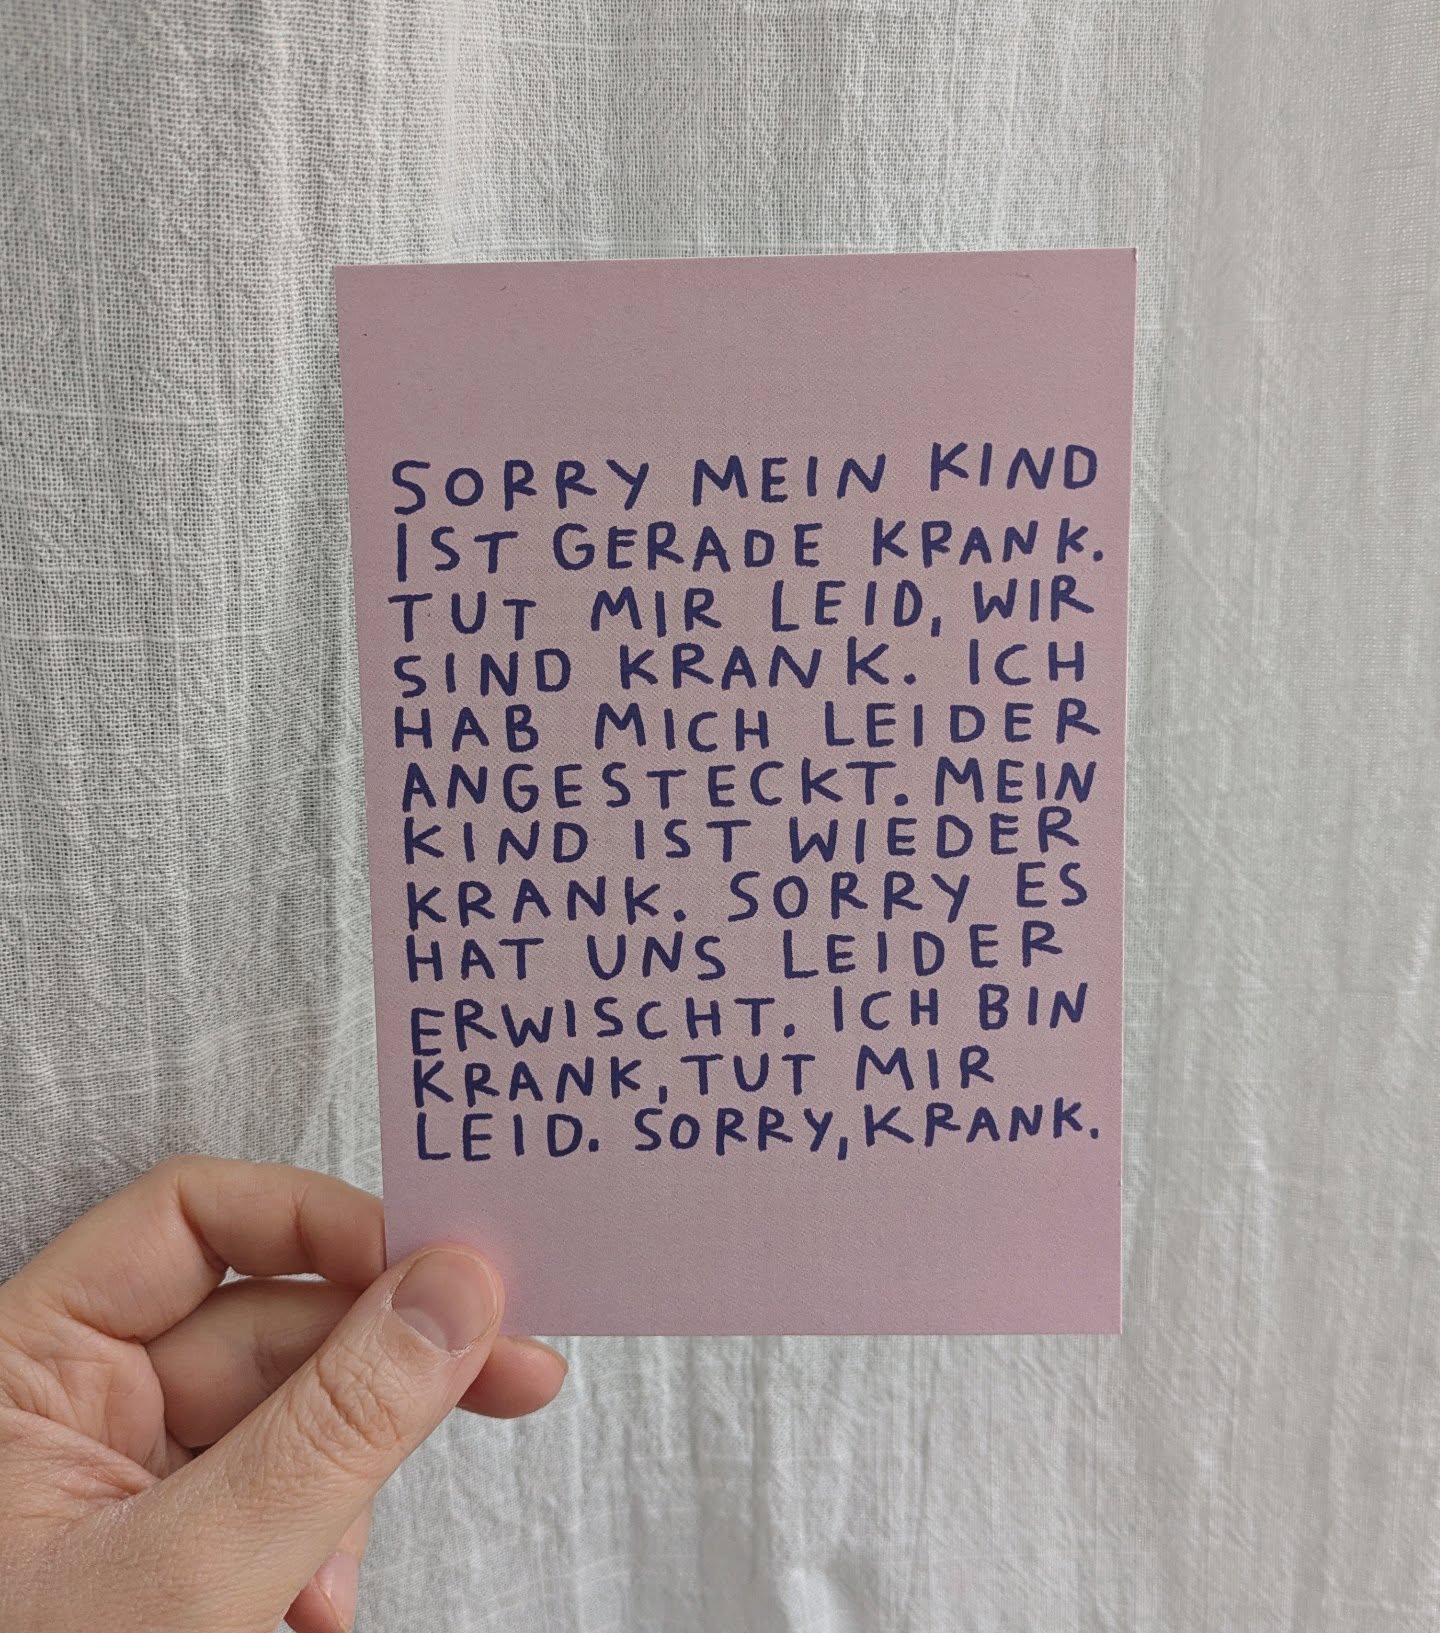 SORRY MEIN KIND
IST GERADE KRANK.
TUT MIR LEID, WIR
SIND KRANK. ICH
HAB MICH LEIDER
ANGESTECKT. MEIN
KIND IST WIEDER
KRANK. SORRY ES
HAT UNS LEIDER
ERWISCHT. ICH BIN
KRANK, TUT MIR
LEID. SORRY, KRANK.